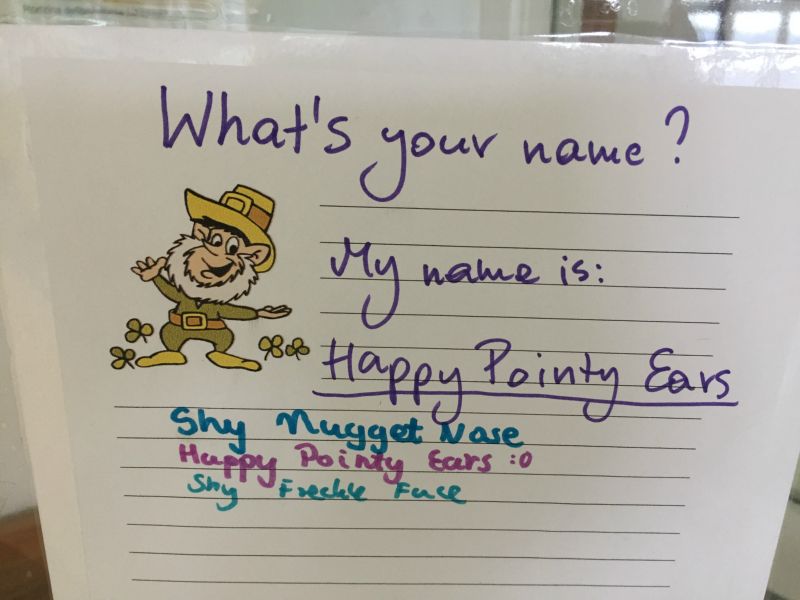 What's your name?
My name is:
Happy Pointy Ears
Shy Nugget Nose
Happy Pointy Ears :O
Shy Freckle Face